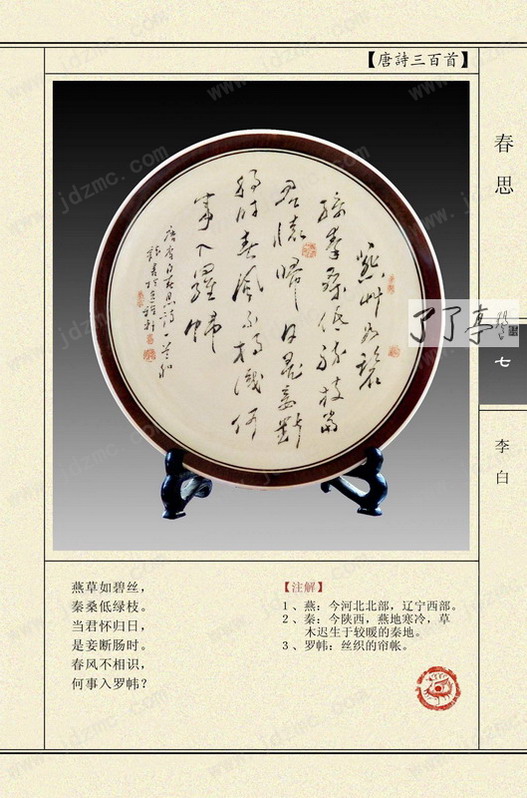 【唐詩三百首】
春思
七
李白
了了亭
燕草如碧
絲秦桑低綠枝當
君懷歸日是妾斷
腸時春風不相識何
事入羅幃
燕草如碧丝，
秦桑低绿枝。
当君怀归日，
是妾断肠时。
春风不相识，
何事入罗帏？
【注解】
1、燕：今河北北部，辽宁西部。
2、秦：今陕西，燕地寒冷，草
木迟生于较暖的秦地。
3、罗帏：丝织的帘帐。
www.jdzmc.com